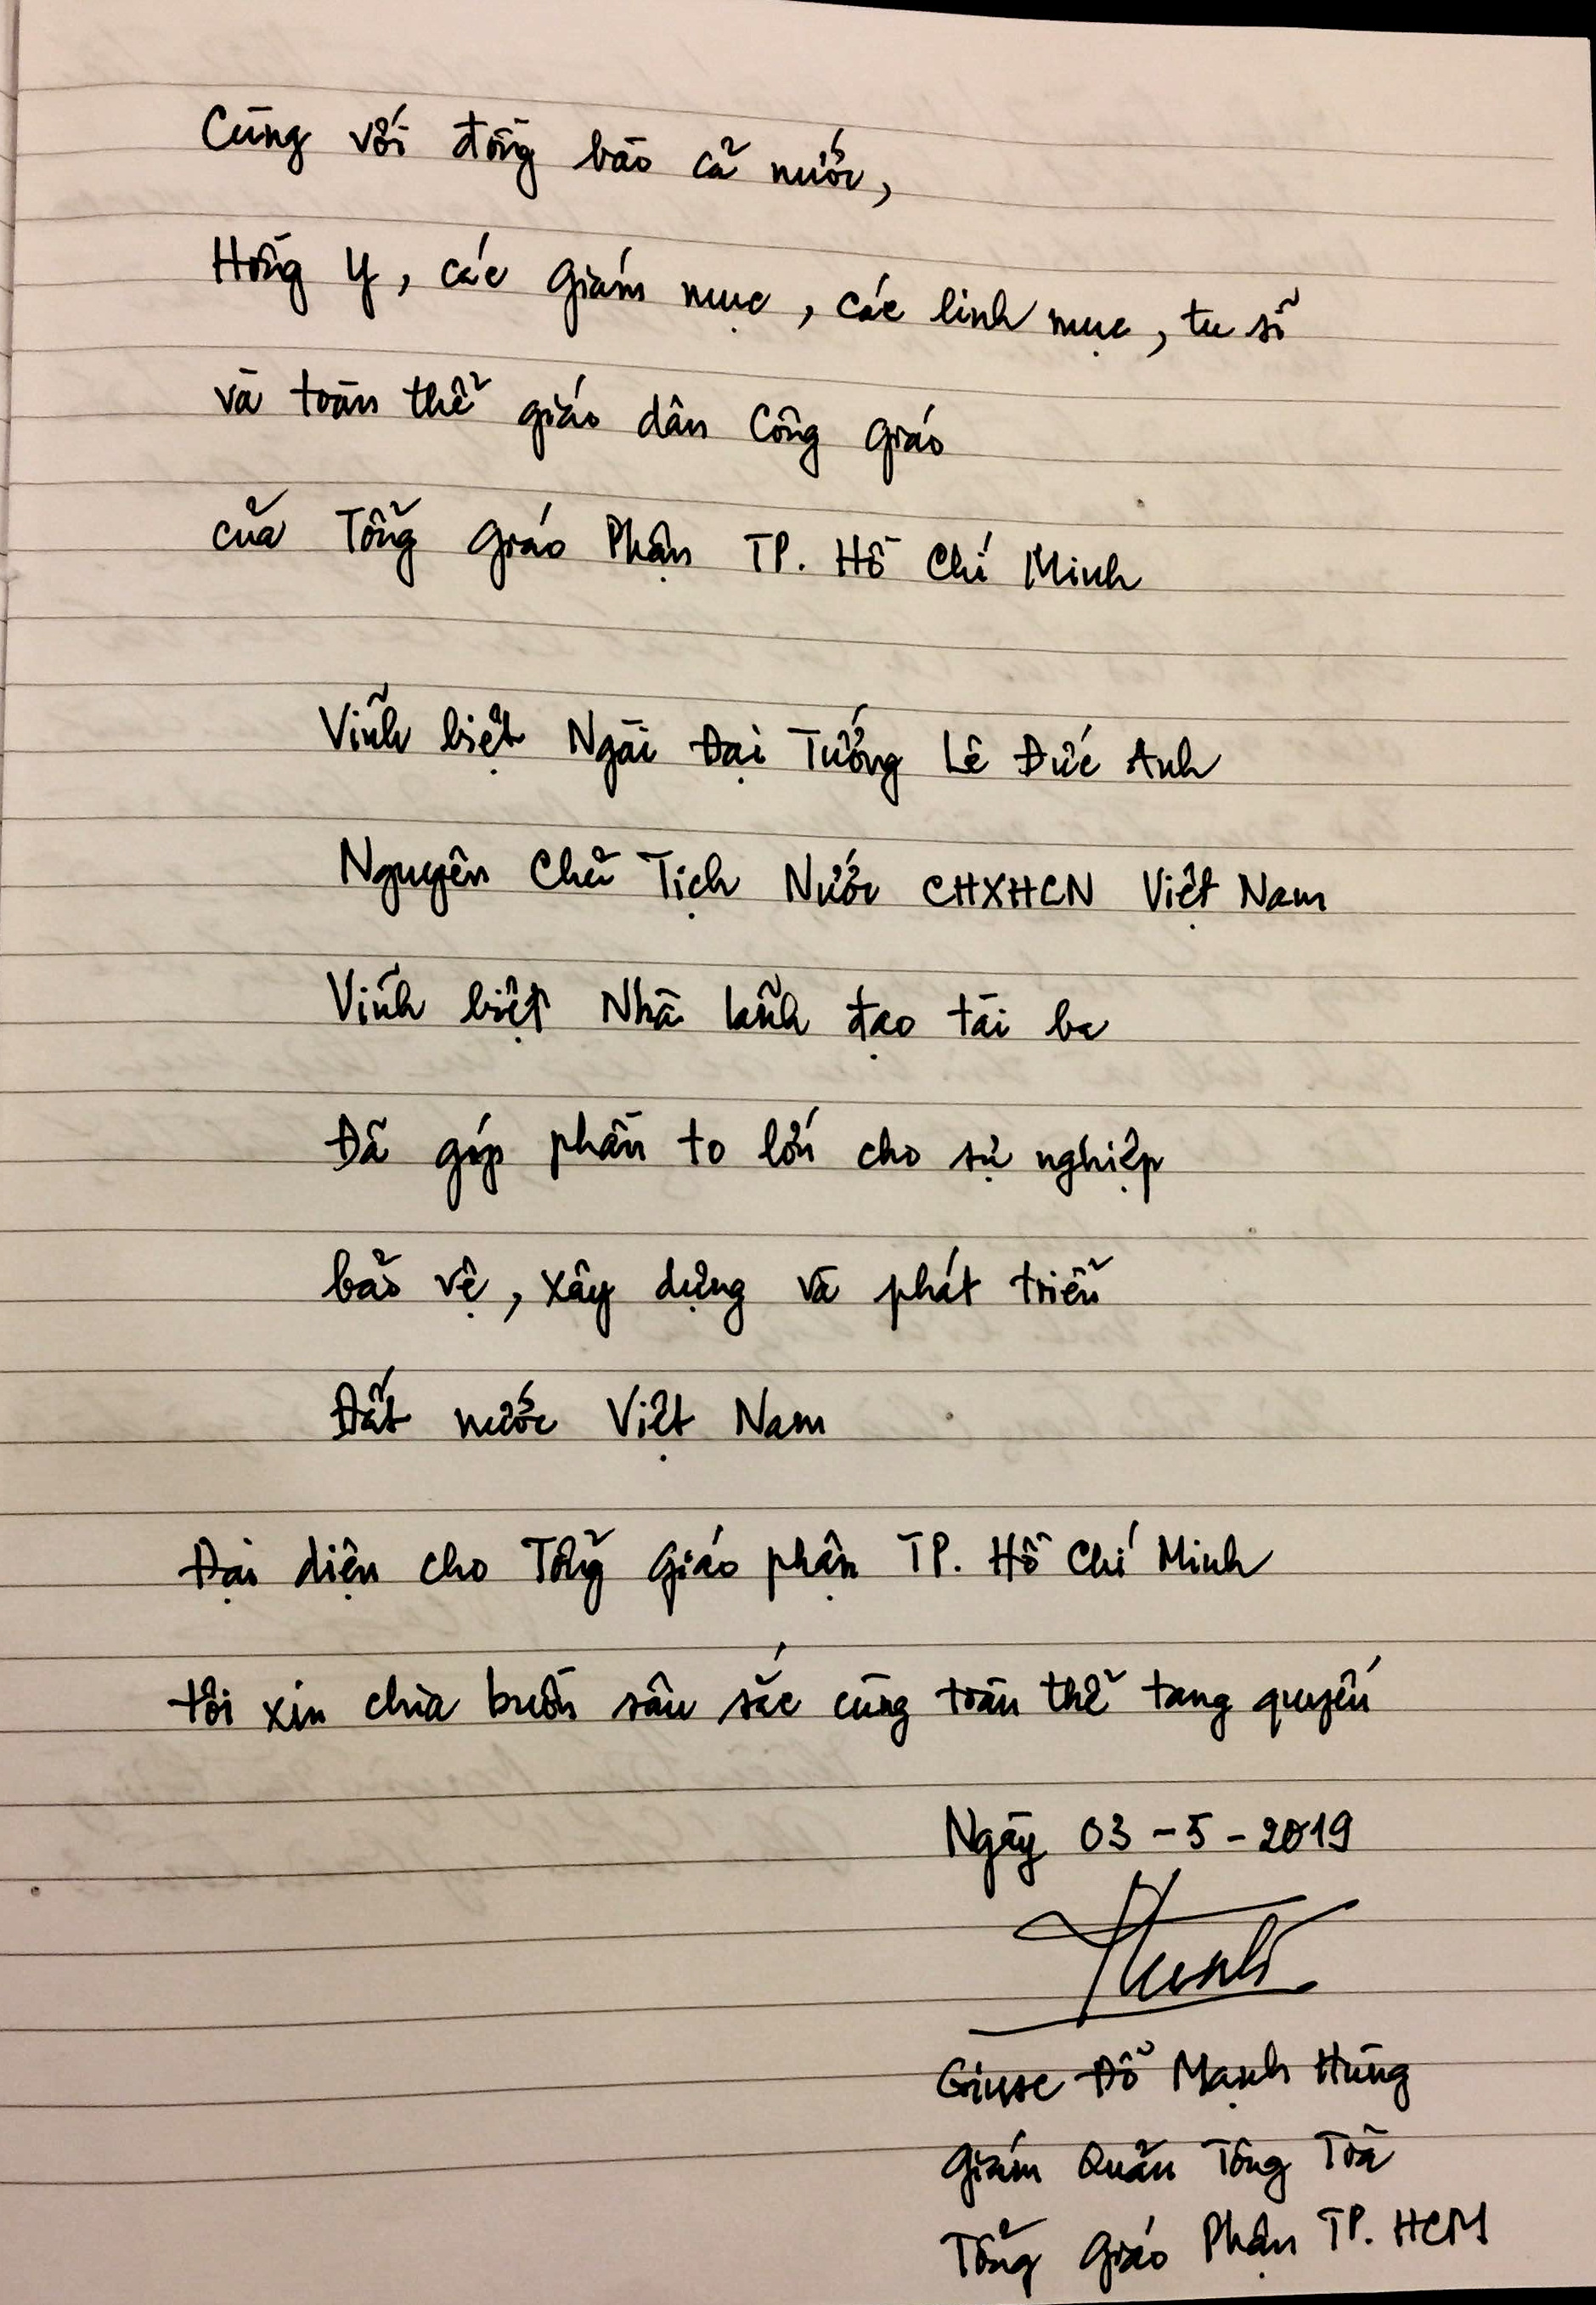 Cùng với đồng bào cả nước,
Hồng Y, các Giám mục, các linh mục, tu sĩ
và toàn thể giáo dân Công giáo
của Tổng Giáo Phận TP. Hồ Chí Minh
Vĩnh biệt Ngài Đại Tướng Lê Đức Anh
Nguyên Chủ Tịch Nước CHXHCN Việt Nam
Vĩnh biệt Nhà lãnh đạo tài ba
Đã góp phần to lớn cho sự nghiệp
bảo vệ, xây dựng và phát triển
Đất nước Việt Nam
Đại diện cho Tổng Giáo phận TP. Hồ Chí Minh
tôi xin chia buồn sâu sắc cùng toàn thể tang quyến
Ngày 03-5-2019
Giuse Đỗ Mạnh Hùng
Giám Quản Tông Toà
Tổng Giáo Phận TP. HCM